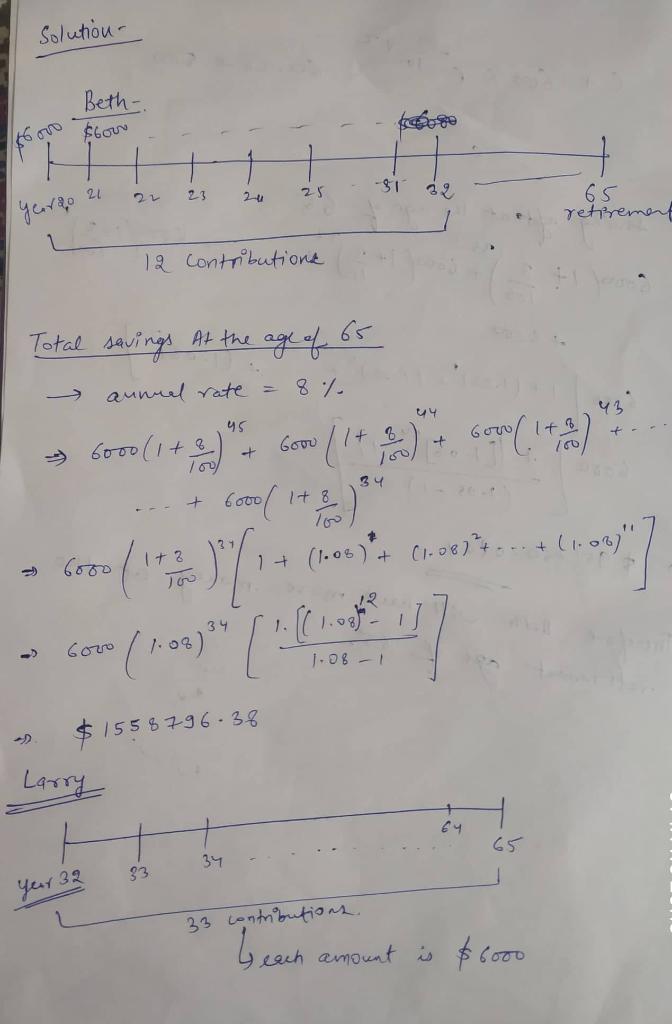 Solution-
Beth-
$6000 $6000
year 20 21 22 23 24 25 31 32 65
retirement
12 Contributions
Total savings At the age of 65
→ annual rate = 8 %
⇒ 6000(1 + 8/100)^45 + 6000(1 + 8/100)^44 + 6000(1 + 8/100)^43 + ...
... + 6000(1 + 8/100)^34
⇒ 6000(1 + 8/100)^34 [1 + (1.08) + (1.08)^2 + ... + (1.08)^11]
⇒ 6000(1.08)^34 [1.[(1.08)^12 - 1] / 1.08 - 1]
⇒ $1558796.38
Larry
year 32 33 34 ... 64 65
33 contributions.
↳ each amount is $6000